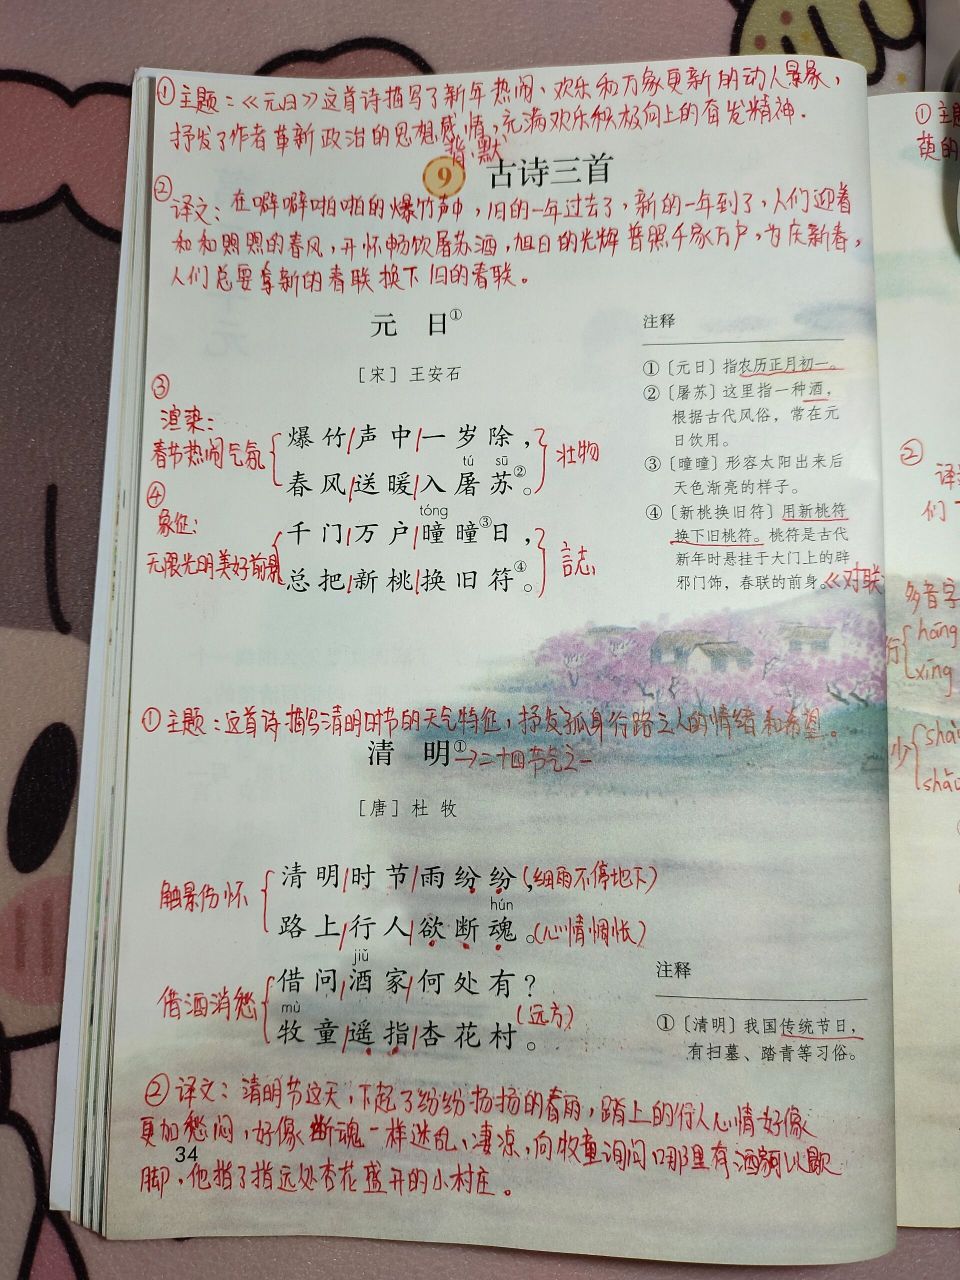 ①主题：《元日》这首诗描写了新年热闹、欢乐和万家更新的动人景象，
抒发了作者革新政治的思想感情，充满欢乐积极向上的奋发精神.
背、默
9 古诗三首
②译文：在噼噼啪啪的爆竹声中，旧的一年过去了，新的一年到了，人们迎着
和和煦煦的春风，开怀畅饮屠苏酒，旭日的光辉普照千家万户，为庆新春，
人们总要拿新的春联换下旧的春联。
元日①
［宋］王安石
③
渲染：
春节热闹气氛
爆竹/声中/一岁除，
tú sū
春风/送暖/入屠苏②。
壮物
④
象征：
无限光明美好前景
tóng
千门/万户/曈曈③日，
总把/新桃/换旧符④。
言志
注释
①〔元日〕指农历正月初一。
②〔屠苏〕这里指一种酒，
根据古代风俗，常在元
日饮用。
③〔曈曈〕形容太阳出来后
天色渐亮的样子。
④〔新桃换旧符〕用新桃符
换下旧桃符。桃符是古代
新年时悬挂于大门上的辟
邪门饰，春联的前身。《对联
①主题：这首诗描写清明时节的天气特征，抒发孤身行路之人的情绪和希望。
清明①→二十四节气之一
［唐］杜牧
触景伤怀
清明/时节/雨纷纷，(细雨不停地下)
hún
路上/行人/欲断魂。(心情惆怅)
借酒消愁
jiǔ
借问/酒家/何处有？
mù
牧童/遥指/杏花村。(远方)
注释
①〔清明〕我国传统节日，
有扫墓、踏青等习俗。
②译文：清明节这天，下起了纷纷扬扬的春雨，路上的行人心情好像
更加愁闷，好像断魂一样迷乱、凄凉，向牧童询问哪里有酒家可以歇
脚，他指了指远处杏花盛开的小村庄。
34
①主
萸的
②
译
们
多音字
行
háng
xíng
少